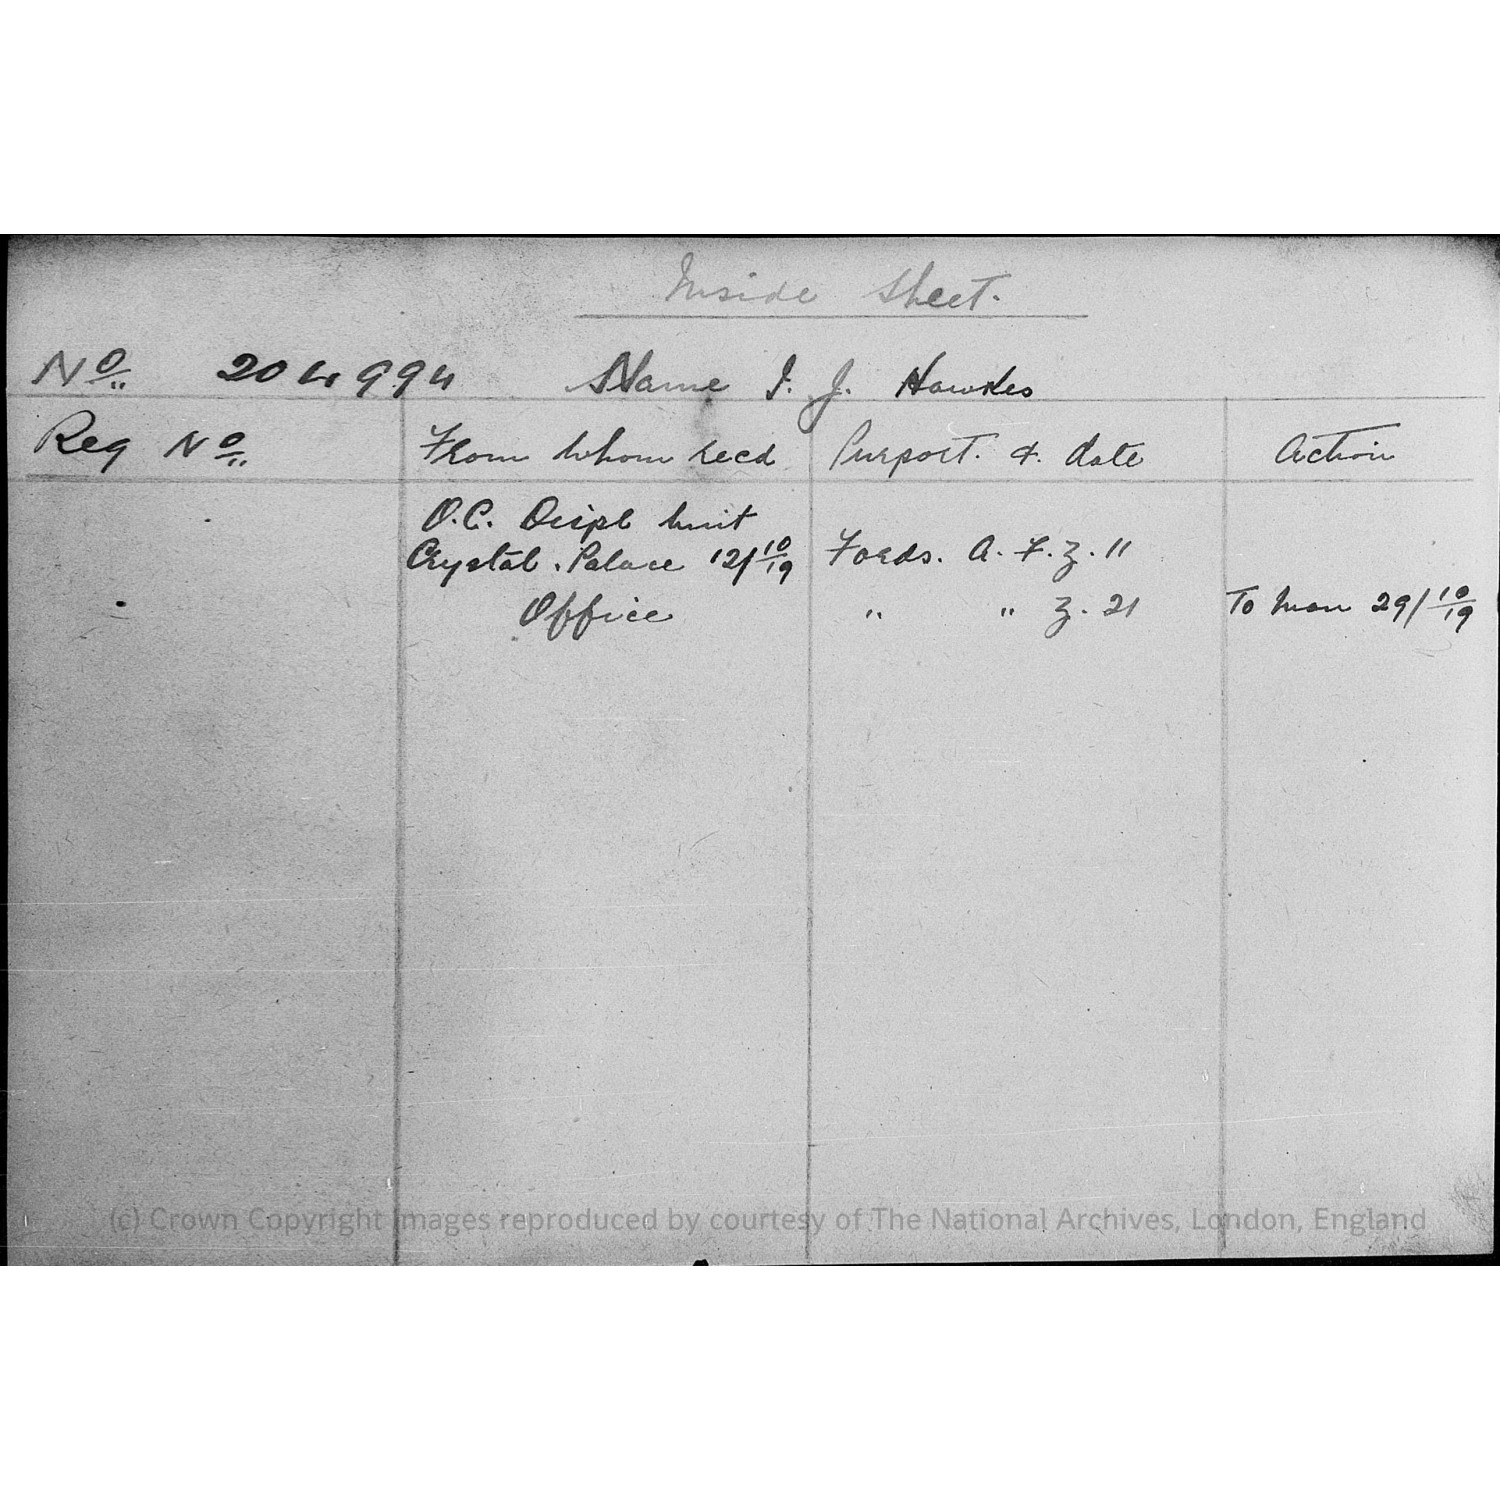 Inside Sheet.
No. 204994 Name I. J. Hawkes
Reg No. From whom recd Purport. & date Action
O.C. Displ Unit
Crystal. Palace 12/10/19 Fords. A. F. Z. 11
Office " " Z. 21 To man 29/10/19
(c) Crown Copyright Images reproduced by courtesy of The National Archives, London, England